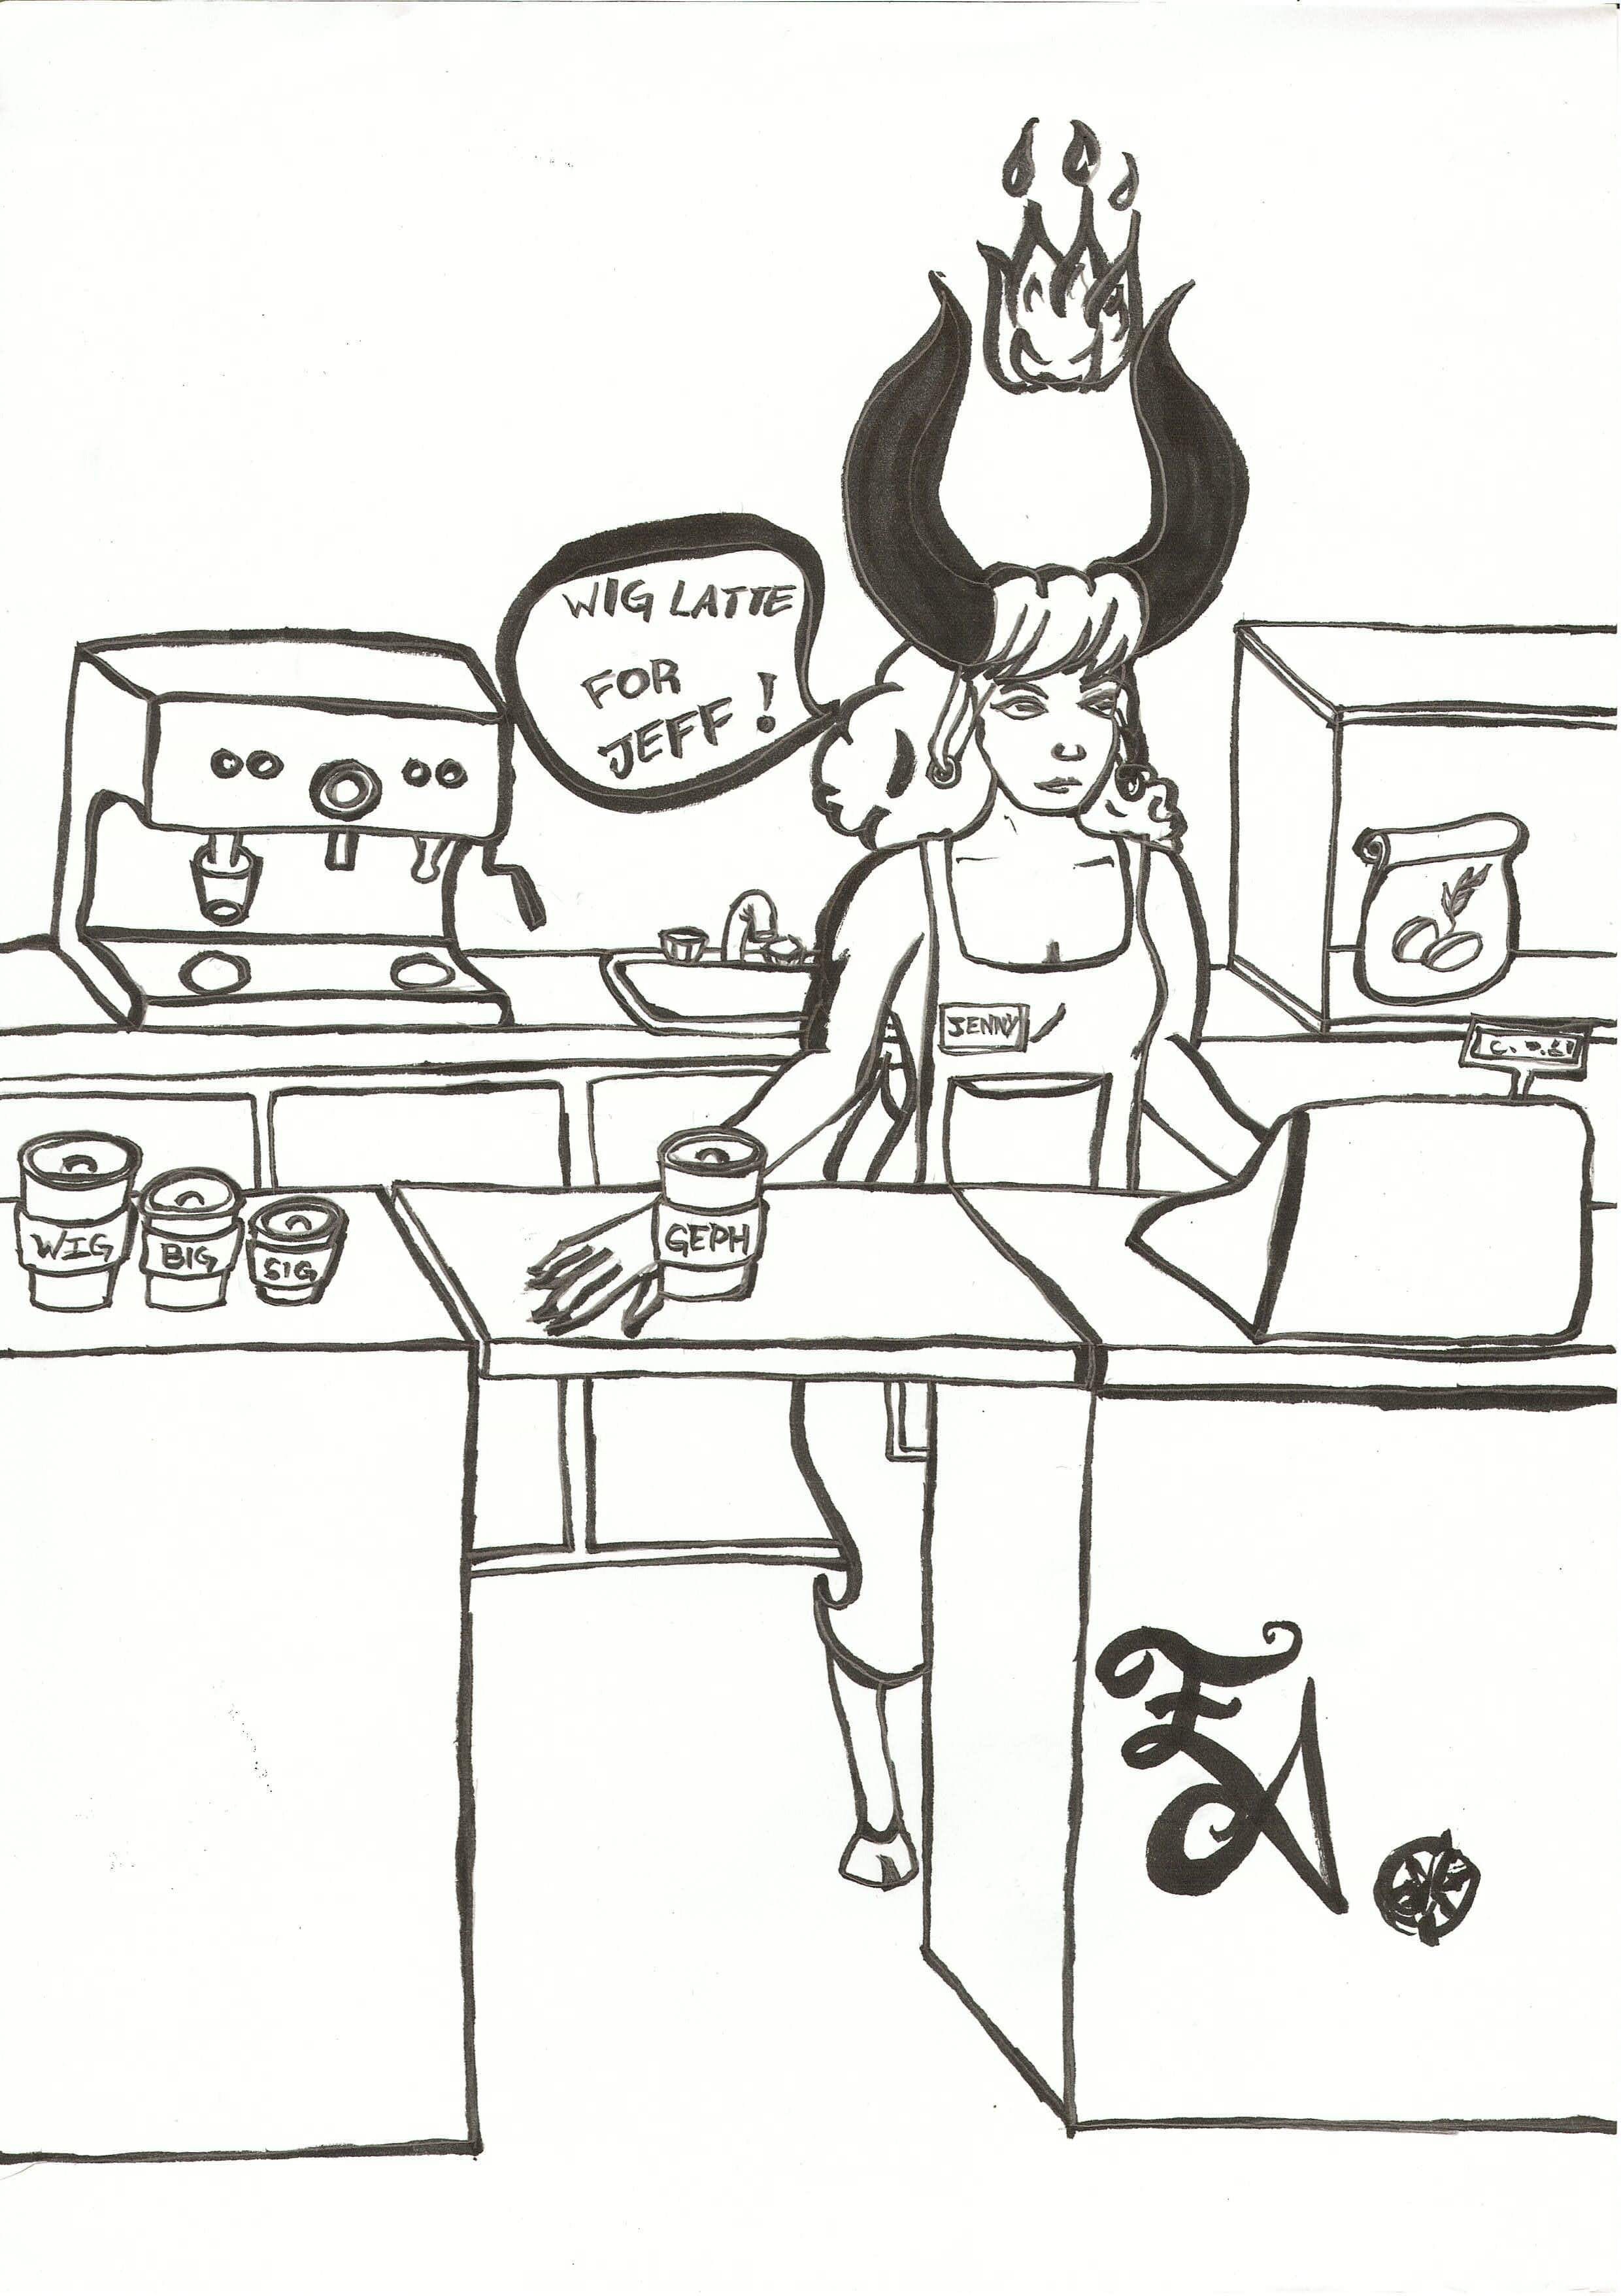 WIG LATTE
FOR
JEFF!
JENNY
WIG
BIG
SIG
GEPH